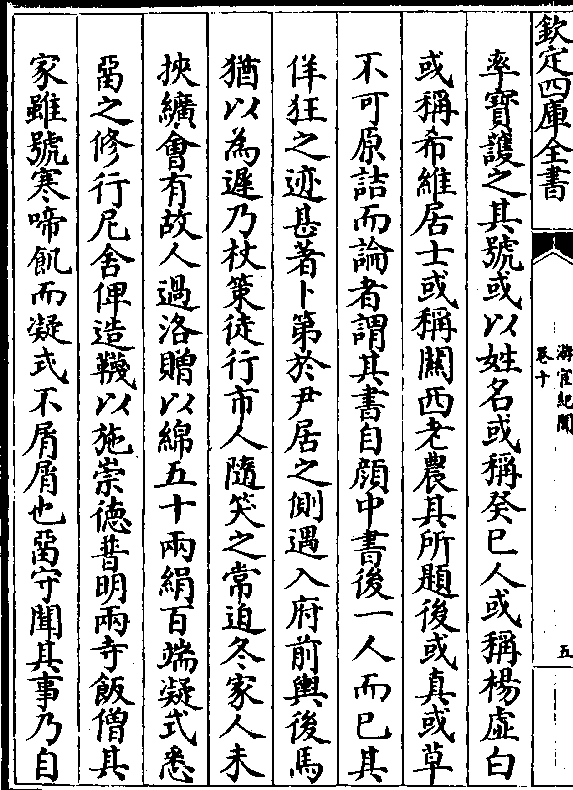 欽定四庫全書
游宦紀聞
卷十
五
率寳護之其號或以姓名或稱癸巳人或稱楊虛白
或稱希維居士或稱關西老農其所題後或真或草
不可原詰而論者謂其書自顔中書後一人而已其
佯狂之迹甚著卜第於尹居之側遇入府前輿後馬
猶以為遲乃杖策徒行市人隨笑之常迫冬家人未
挾纊會有故人過洛贈以綿五十兩絹百端凝式悉
畱之修行尼舍俾造韈以施崇德普明兩寺飯僧其
家雖號寒啼飢而凝式不屑屑也畱守聞其事乃自